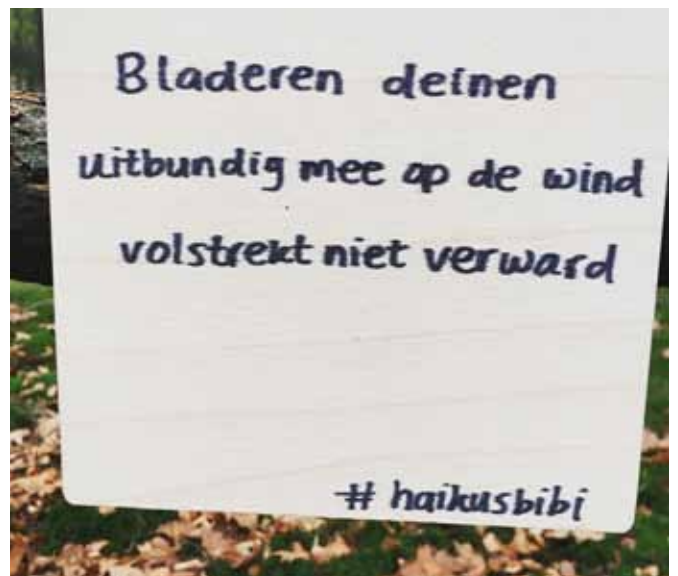 Bladeren deinen
uitbundig mee op de wind
volstrekt niet verward
# haikusbibi